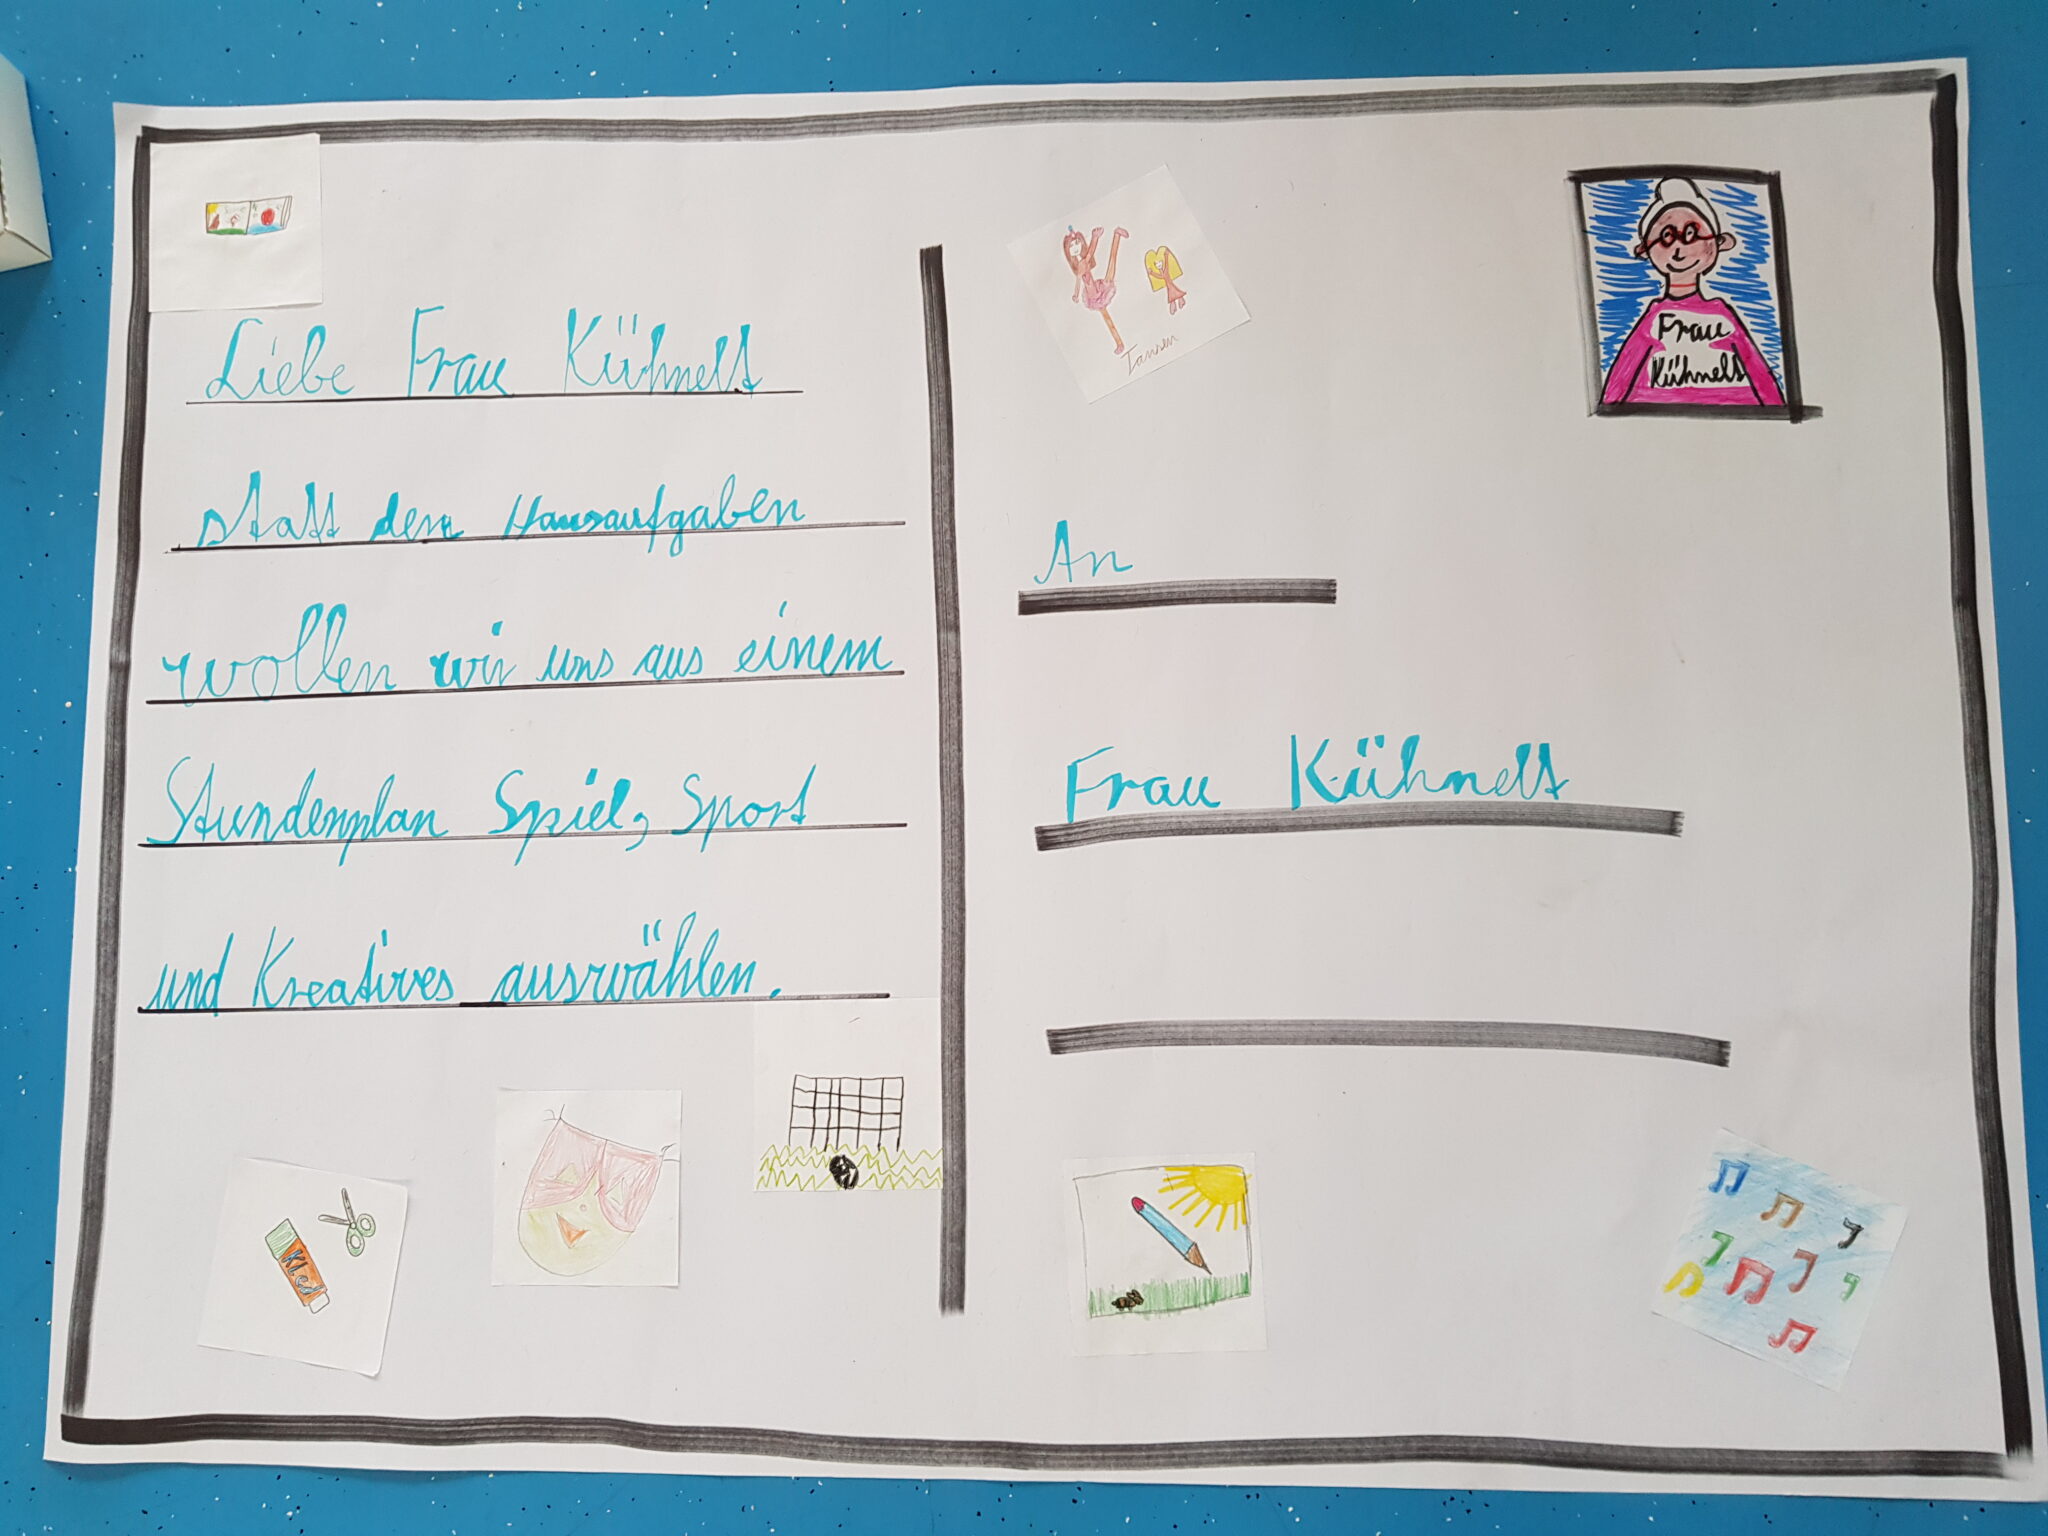 Liebe Frau Kühnelt
statt den Hausaufgaben
wollen wir uns aus einem
Stundenplan Spiel, Sport
und Kreatives auswählen.
An
Frau Kühnelt
Frau
Kühnelt
Tansen